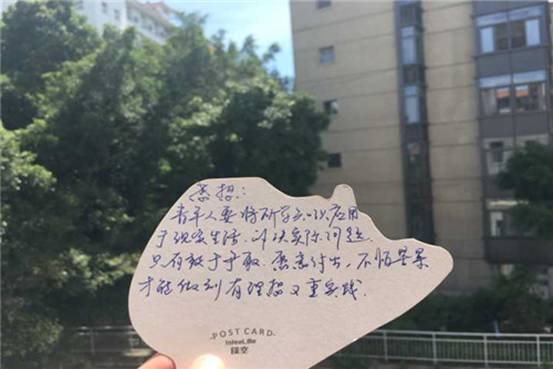 感想：
青年人要将所学知识应用
于现实生活，解决实际问题．
只有敢于争取、愿意付出、不怕苦累
才能做到有理想又重实践．
POST CARD